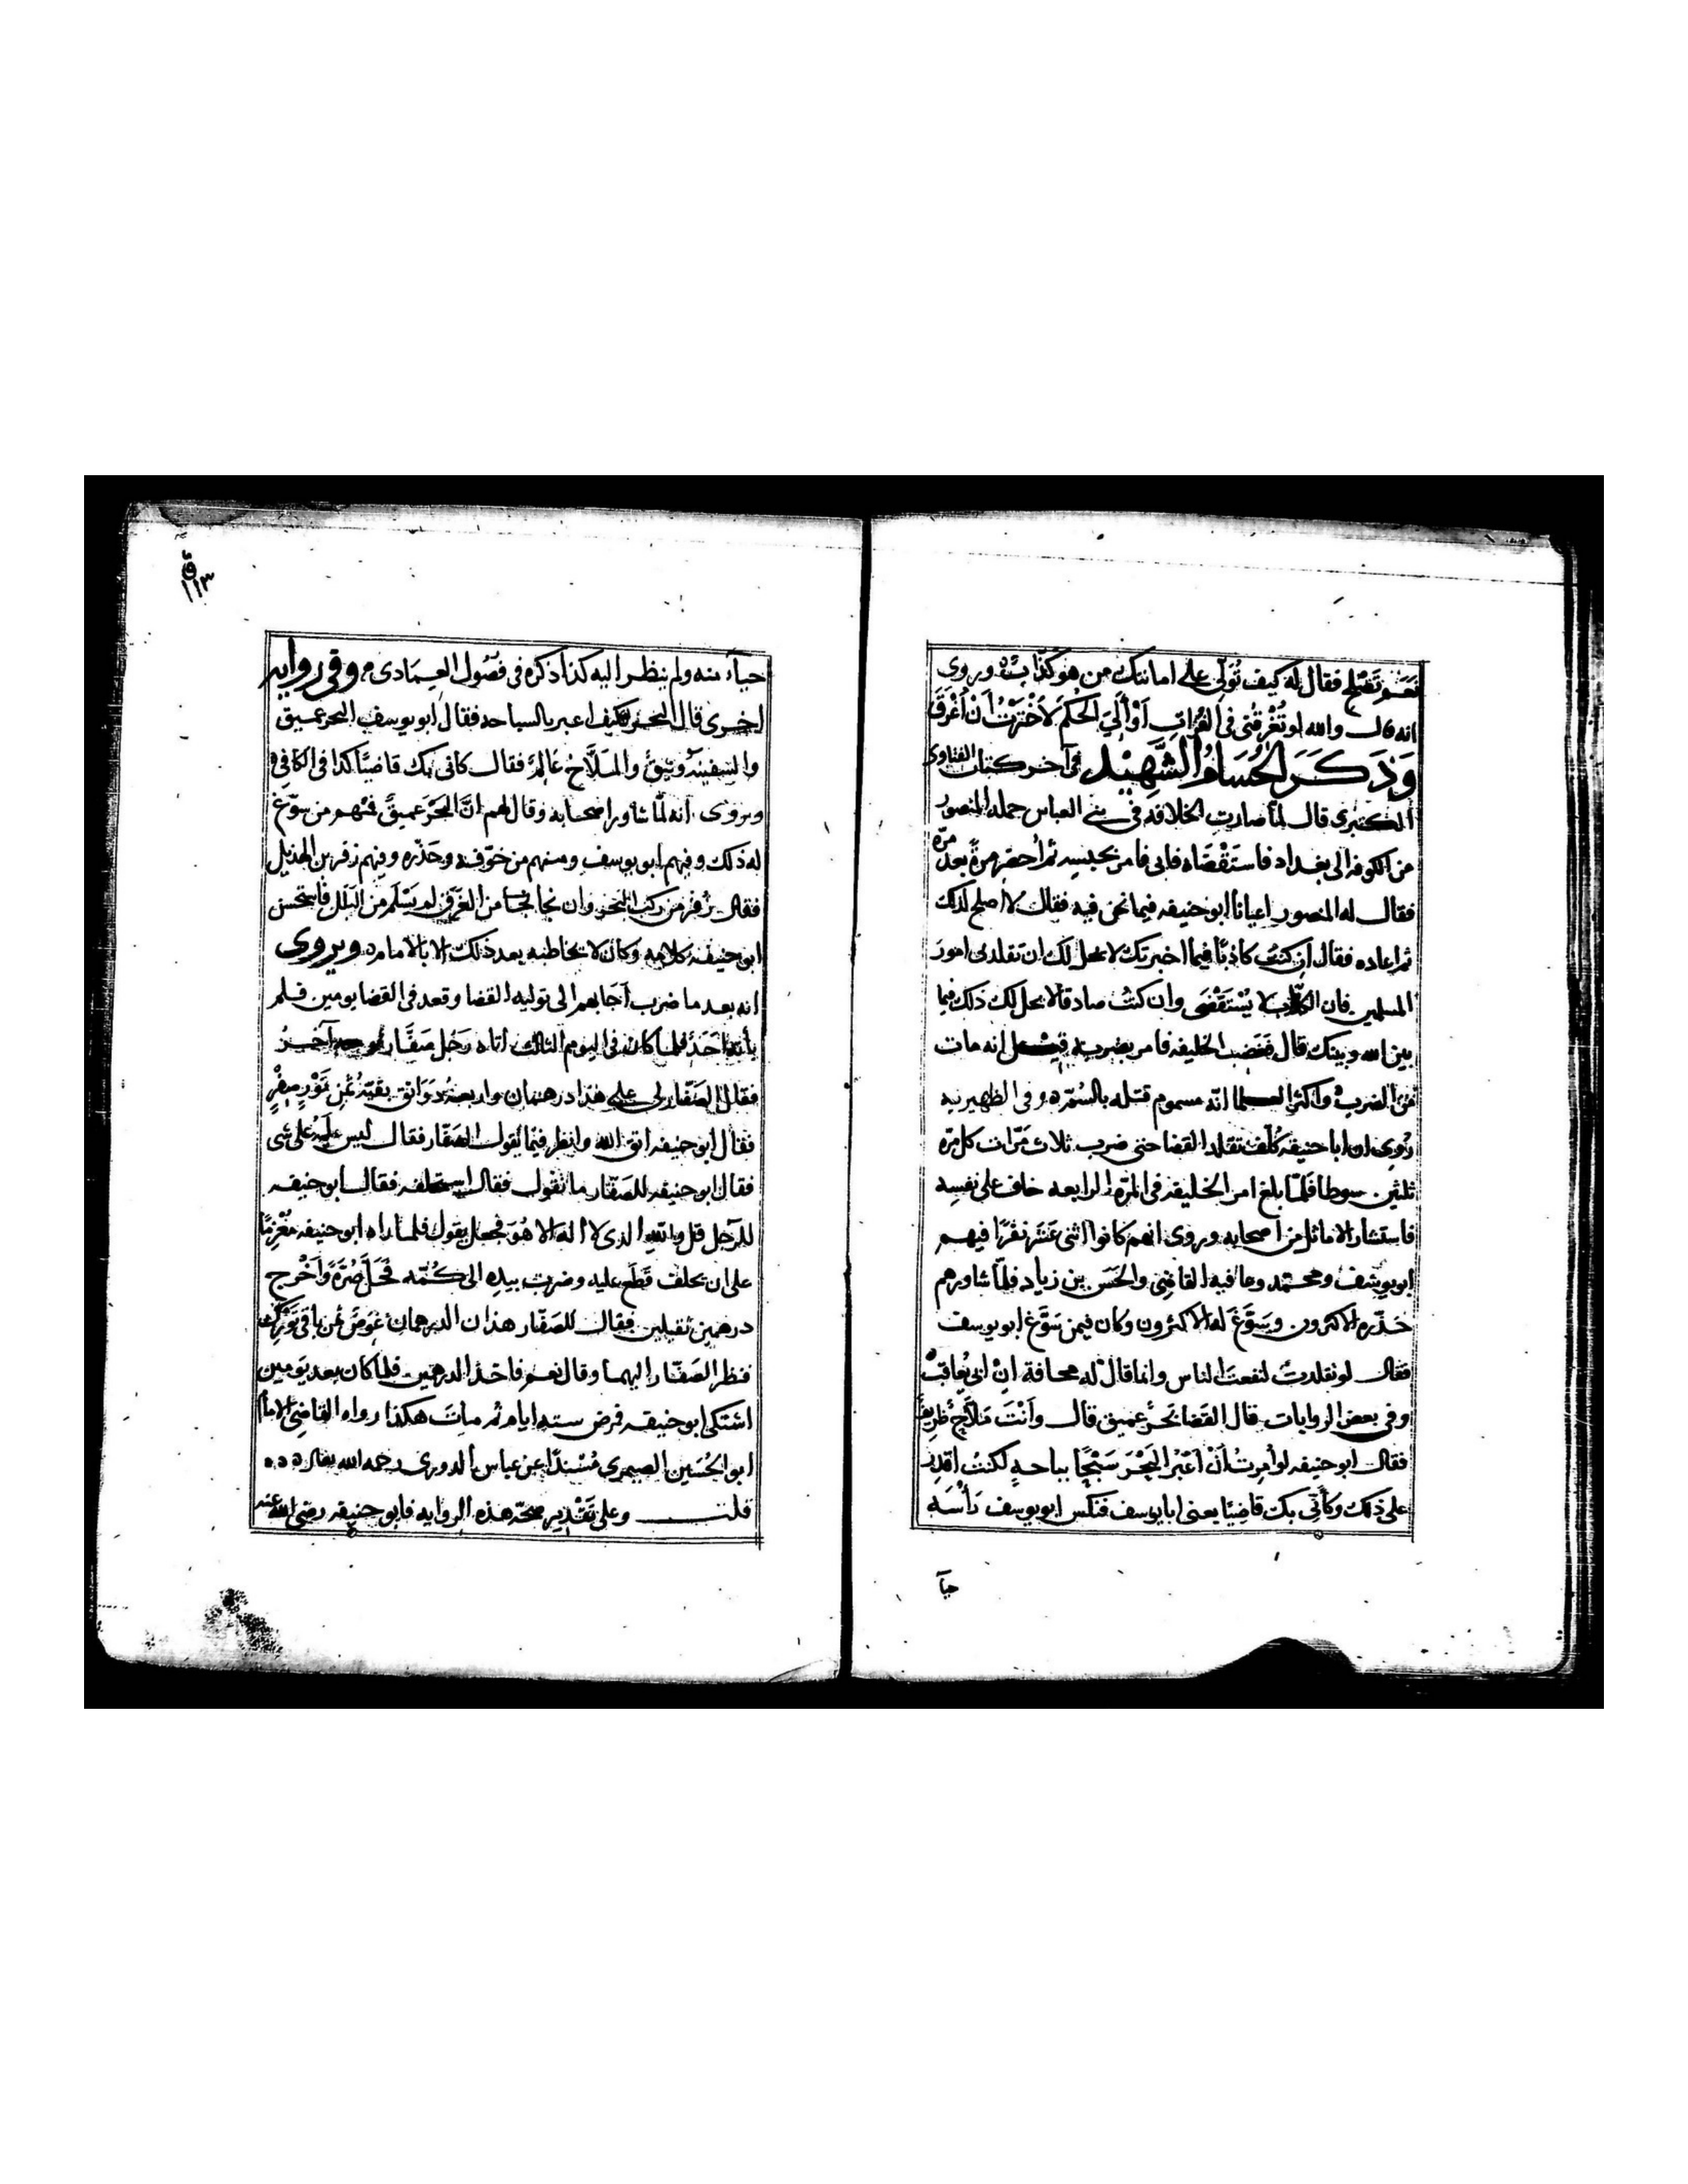 نعم تصلح فقال له كيف تولى على امانتك من هو كذاب ه وروى
انه قال والله لو تُغرقني في الفرات أو ألي الحكم لاخترت أن أغرق
وَذَكَرَ الحُسَامُ الشَّهِيْد في آخر كتاب الفتاوى
الكبرى قال لما صارت الخلافه في بني العباس حمله المنصور
من الكوفه الى بغداد فاستقضاه فابى فامر بحبسه ثم احضره مرة بعد مرة
فقال له المنصور ابا حنيفه فيما نحن فيه فقال لا اصلح لذلك
ثم اعاده فقال ان كنت كاذبًا فيما اخبرتك لا يحل لك ان تقلدني امور
المسلمين فان الكذاب لا يُسْتَقْضَى وان كنت صادقا لا يحل لك ذلك فيما
بين الله وبينك قال فغضب الخليفه فامر بضربه فيقال انه مات
من الضرب واكثر العلما انه مسموم قتله بالسم ه وفي الظهيريه
رُوِي ان ابا حنيفه كُلِّف تقلد القضا حتى ضرب ثلاث مرّات كل مرّه
ثلثين سوطا فلمّا بلغ امر الخليفه في المرّه الرابعه خاف على نفسه
فاستشار الاماثل من أصحابه وروى انهم كانوا اثنى عَشَر نفرًا فيهم
ابويوسف ومحمد وعافيه القاضي والحسن بن زياد فلمّا شاورهم
حذّره الاكثرون وسَوَّغ له الاكثرون وكان فيمن سَوَّغ ابويوسف
فقال لو تقلدت لنفعت الناس وانما قال له مخافة ان ابى يُعاقب
وفي بعض الروايات قال القضا بحرٌ عميق قال وأنت مَلاَّحٌ ظريف
فقال ابوحنيفه لو أمِرتُ أنْ أعْبُرَ البَحْرَ سَبْحًا بباحه لكنت اقدر
على ذلك وكأنّي بك قاضيًا يعني ابايوسف فنكس ابويوسف رَأْسَه
حيآ
١١٣
حياءً منه ولم ينظر اليه كذا ذكره في فصُول العِمَادى ه وفي رواية
اخرى قال البحر كيف اعبر بالسباحه فقال ابويوسف البحر عميق
والسفينه وثيقٌ والمَلاَّحُ عَالِمٌ فقال كانى بك قاضيًا كذا في الكافي
ويروى انه لمّا شاور اصحابه وقال لهم انَّ البحر عميقٌ فمنهم من سوّغ
له ذلك وفيهم ابو يوسف ومنهم من خوّفه وحذّره وفيهم زفر بن الهذيل
فقال زُفر من ركب البحر وان نجا من الغرق لم يَسْلم من البَلَل فاستحسن
ابوحنيفه كلامه وكان لا يخاطبه بعد ذلك الا بالامام ه ويروى
انه بعد ما ضرب أجابهم الى توليه القضا وقعد في القضا يومين فلم
يأته احدٌ فلما كان في اليوم الثالث اتاه رَجُل صَفَّار ومعه آخر
فقال الصَفّار لي على هذا درهمان واربعة دَوَانق بقيّةُ ثمن تَوْرٍ صِفْرٍ
فقال ابوحنيفه اتق الله وانظر فيما يقول الصَفّار فقال ليس له على شى
فقال ابوحنيفه للصَفّار ما تقول فقال استحلفه فقال ابوحنيفه
للرّجل قل والله الذى لا اله الا هُوَ فجعل يقول فلما راه ابوحنيفه
على ان يحلف قَطَع عليه وضرب بيده الى كُمّه فحَلَّ صُرَّةً وأخْرج
درهمين ثقيلين فقال للصَفّار هذان الدرهمان عِوَض ثمن باقي تَوْرك
فنظر الصَفّار اليهما وقال نعم فاخذ الدرهمين فلما كان بعد يَومين
اشتكى ابوحنيفه فمرض سته ايام ثم مات هكذا رواه القاضِي الامام
ابو الحُسَين الصيمرى مُسْندًا عن عباس الدورى رحمه الله تعالى ه ه ه
قلت وعلى تقدير صحّة هذه الروايه فابوحنيفه رضى الله عنه